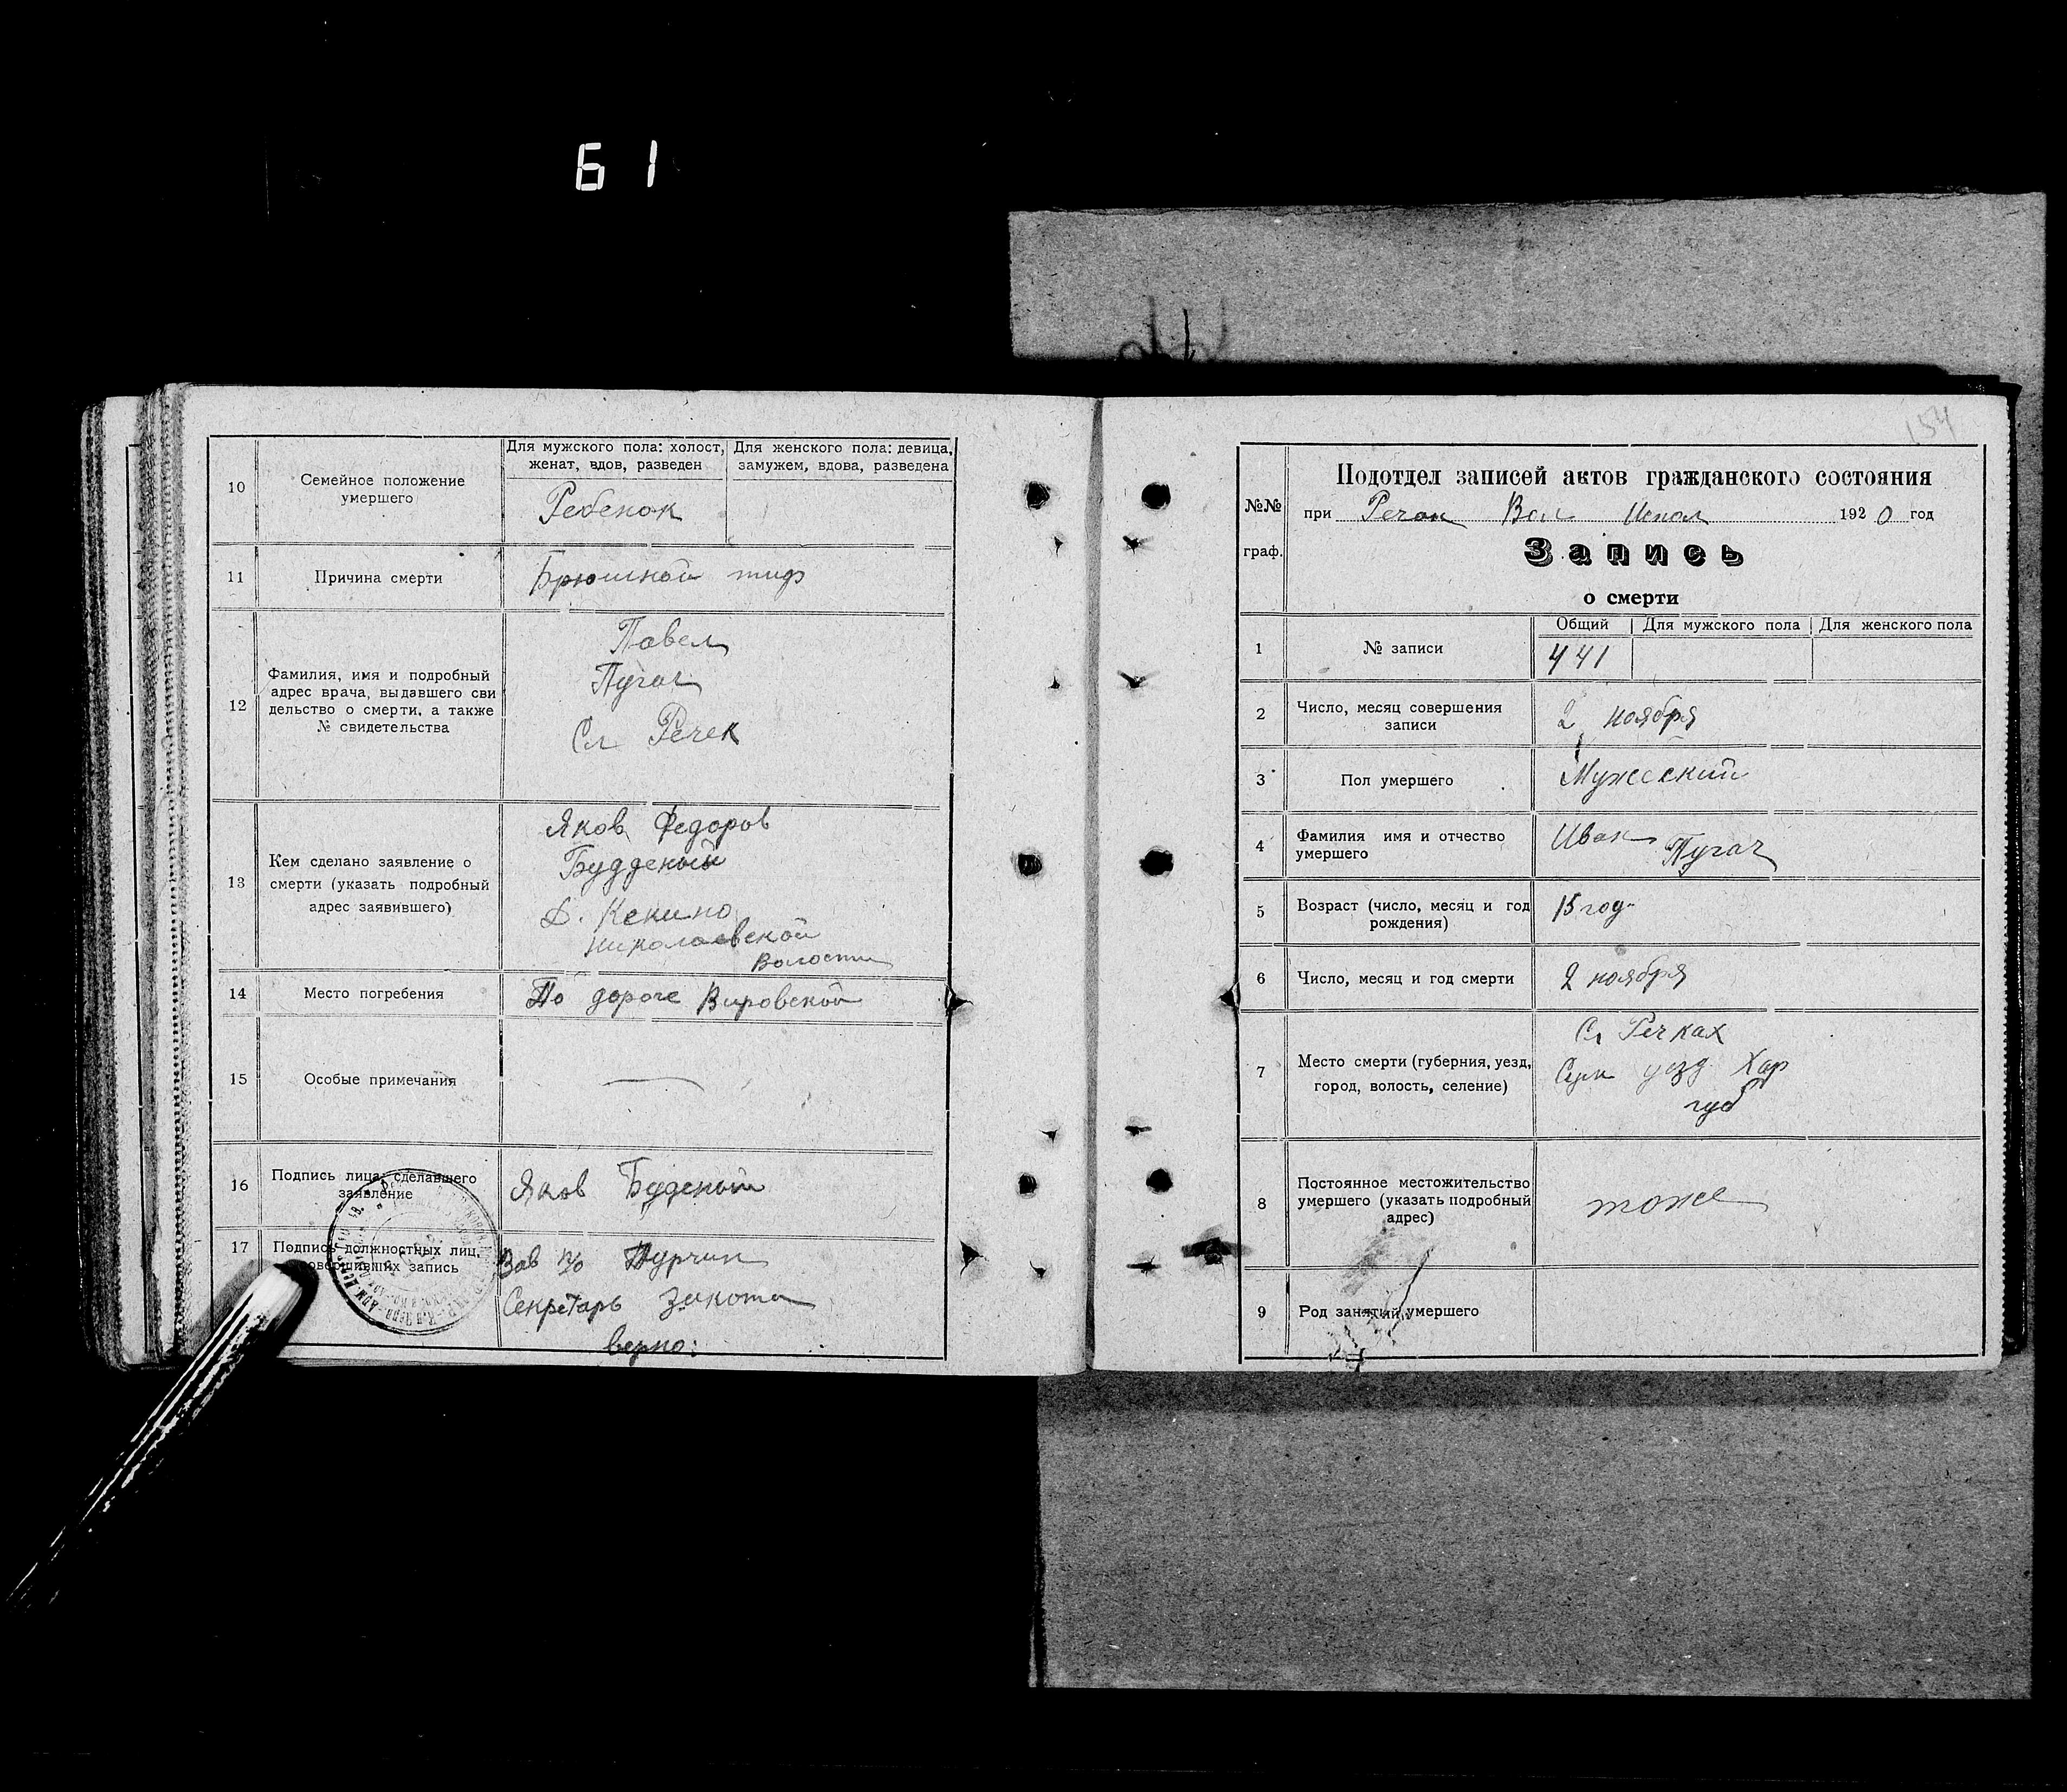 61
10
Семейное положение
умершего
Для мужского пола: холост,
женат, вдов, разведен
Для женского пола: девица,
замужем, вдова, разведена
Ребенок
11
Причина смерти
Брюшной тиф
12
Фамилия, имя и подробный
адрес врача, выдавшего сви
дельство о смерти, а также
№ свидетельства
Павел
Пугач
Сл Речек
13
Кем сделано заявление о
смерти (указать подробный
адрес заявившего)
Яков Федоров
Будденый
Д. Кекино
Николаевской
Волости
14
Место погребения
По дороге Вировской
15
Особые примечания
16
Подпись лица, сделавшего
заявление
Яков Буденый
17
Подпись должностных лиц,
совершивших запись
Зав п/о
Секретарь
верно:
154
№№
граф.
Подотдел записей актов гражданского состояния
при Речан Вол Испол 1920 год
Запись
о смерти
1
№ записи
Общий
Для мужского пола
Для женского пола
441
2
Число, месяц совершения
записи
2 ноября
3
Пол умершего
Мужеский
4
Фамилия имя и отчество
умершего
Иван
Пугач
5
Возраст (число, месяц и год
рождения)
15 год
6
Число, месяц и год смерти
2 ноября
7
Место смерти (губерния, уезд,
город, волость, селение)
Сл Речках
Сум уезд Хар
губ
8
Постоянное местожительство
умершего (указать подробный
адрес)
тоже
9
Род занятий умершего